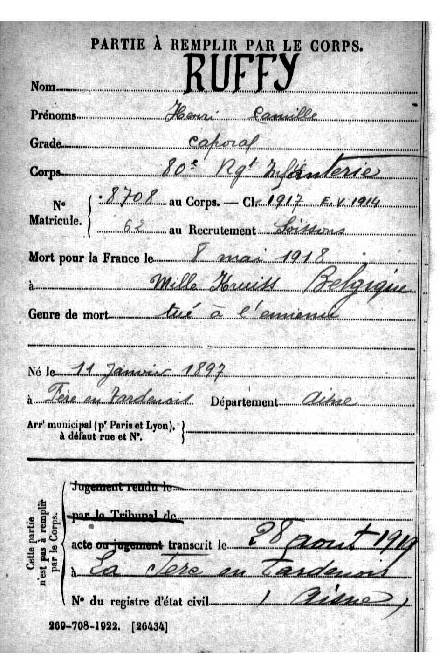 PARTIE À REMPLIR PAR LE CORPS.
Nom RUFFY
Prénoms Henri Camille
Grade caporal
Corps 80e Rgt Infanterie
No Matricule. { 8708 au Corps. — Cl. 1917 E.V. 1914
62 au Recrutement Soissons
Mort pour la France le 8 mai 1918
à Mille Kruiss Belgique
Genre de mort tué à l'ennemi
Né le 11 Janvier 1897
à Fère en Tardenois Département Aisne
Arrt municipal (pr Paris et Lyon), à défaut rue et No. }
Cette partie n'est pas à remplir par le Corps.
Jugement rendu le
par le Tribunal de
acte ou jugement transcrit le 28 aout 1919
à La Fère en Tardenois
No du registre d'état civil ( Aisne )
269-708-1922. [26434]